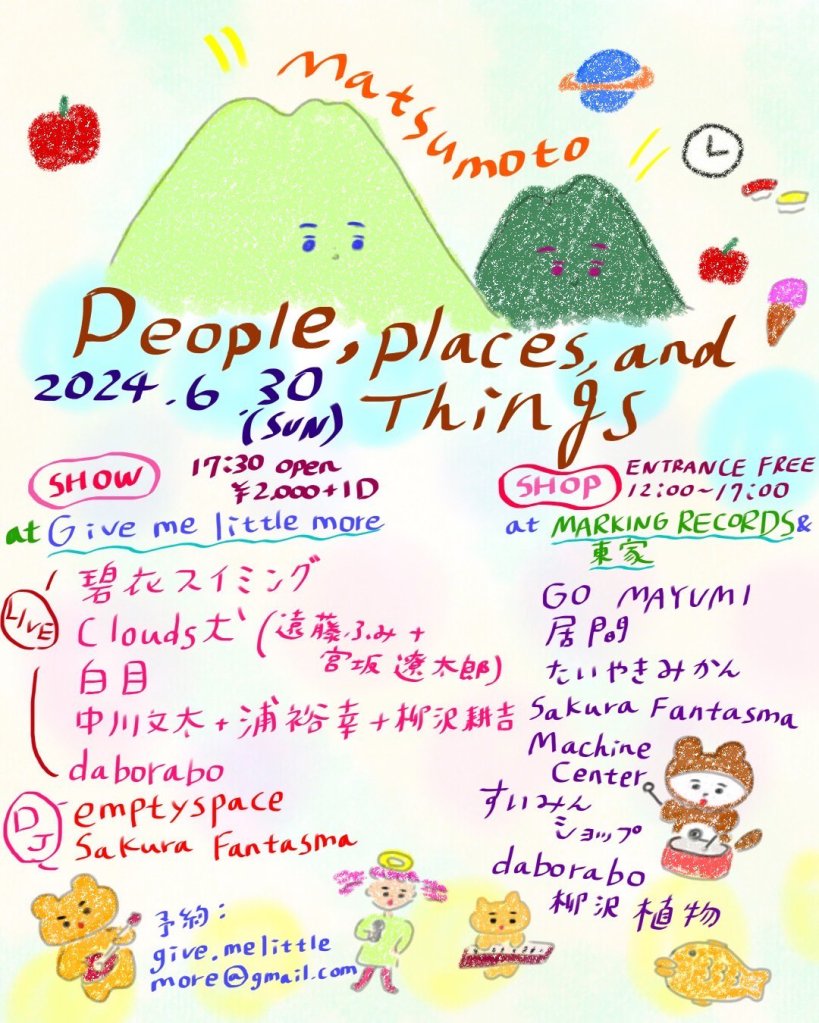 Matsumoto
People, places, and
Things
2024.6.30
(SUN)
SHOW
17:30 open
¥2,000+1D
at Give me little more
LIVE
碧衣スイミング
Clouds犬 (遠藤ふみ+
宮坂遼太郎)
白目
中川文太+浦裕幸+柳沢耕吉
daborabo
DJ
emptyspace
Sakura Fantasma
予約:
give.melittle
more@gmail.com
SHOP
ENTRANCE FREE
12:00~17:00
at MARKING RECORDS &
東家
GO MAYUMI
居間
たいやきみかん
Sakura Fantasma
Machine
Center
すいみん
ショップ
daborabo
柳沢 植物